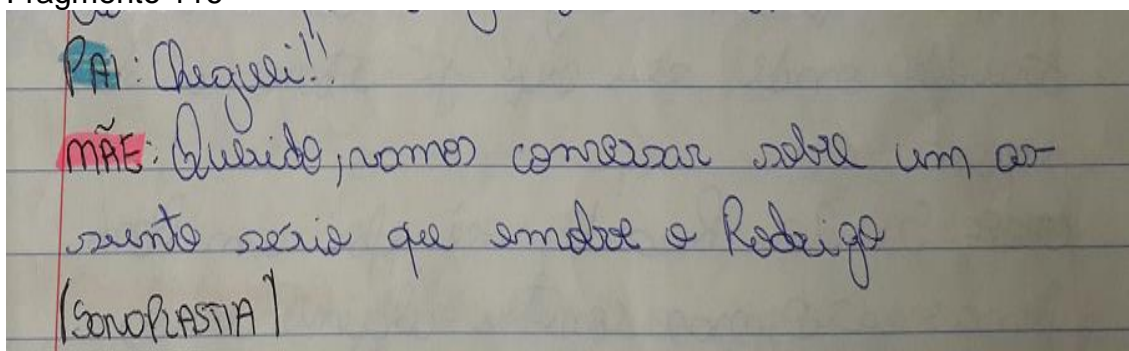 PAI: Cheguei!!
MÃE: Querido, vamos conversar sobre um as-
sunto sério que envolve o Rodrigo
[SONOPLASTIA]